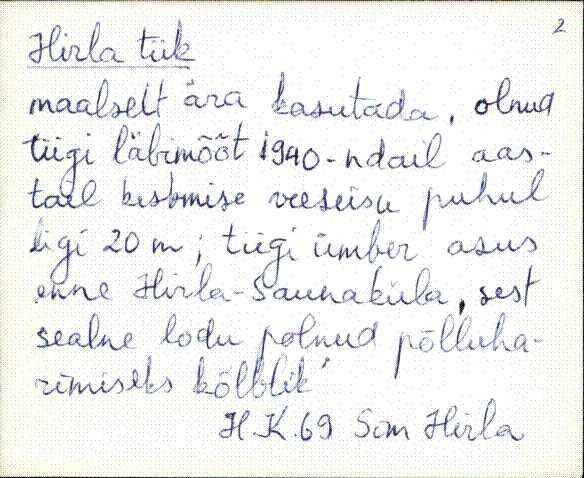 2
Hirla tiik
maalselt ära kasutada, olnud
tiigi läbimõõt 1940-ndail aas-
tail keskmise veeseisu puhul
ligi 20 m; tiigi ümber asus
enne Hirla-Saunaküla, sest
sealne lodu polnud põlluha-
rimiseks kõlblik'
H.K.69 Som Hirla